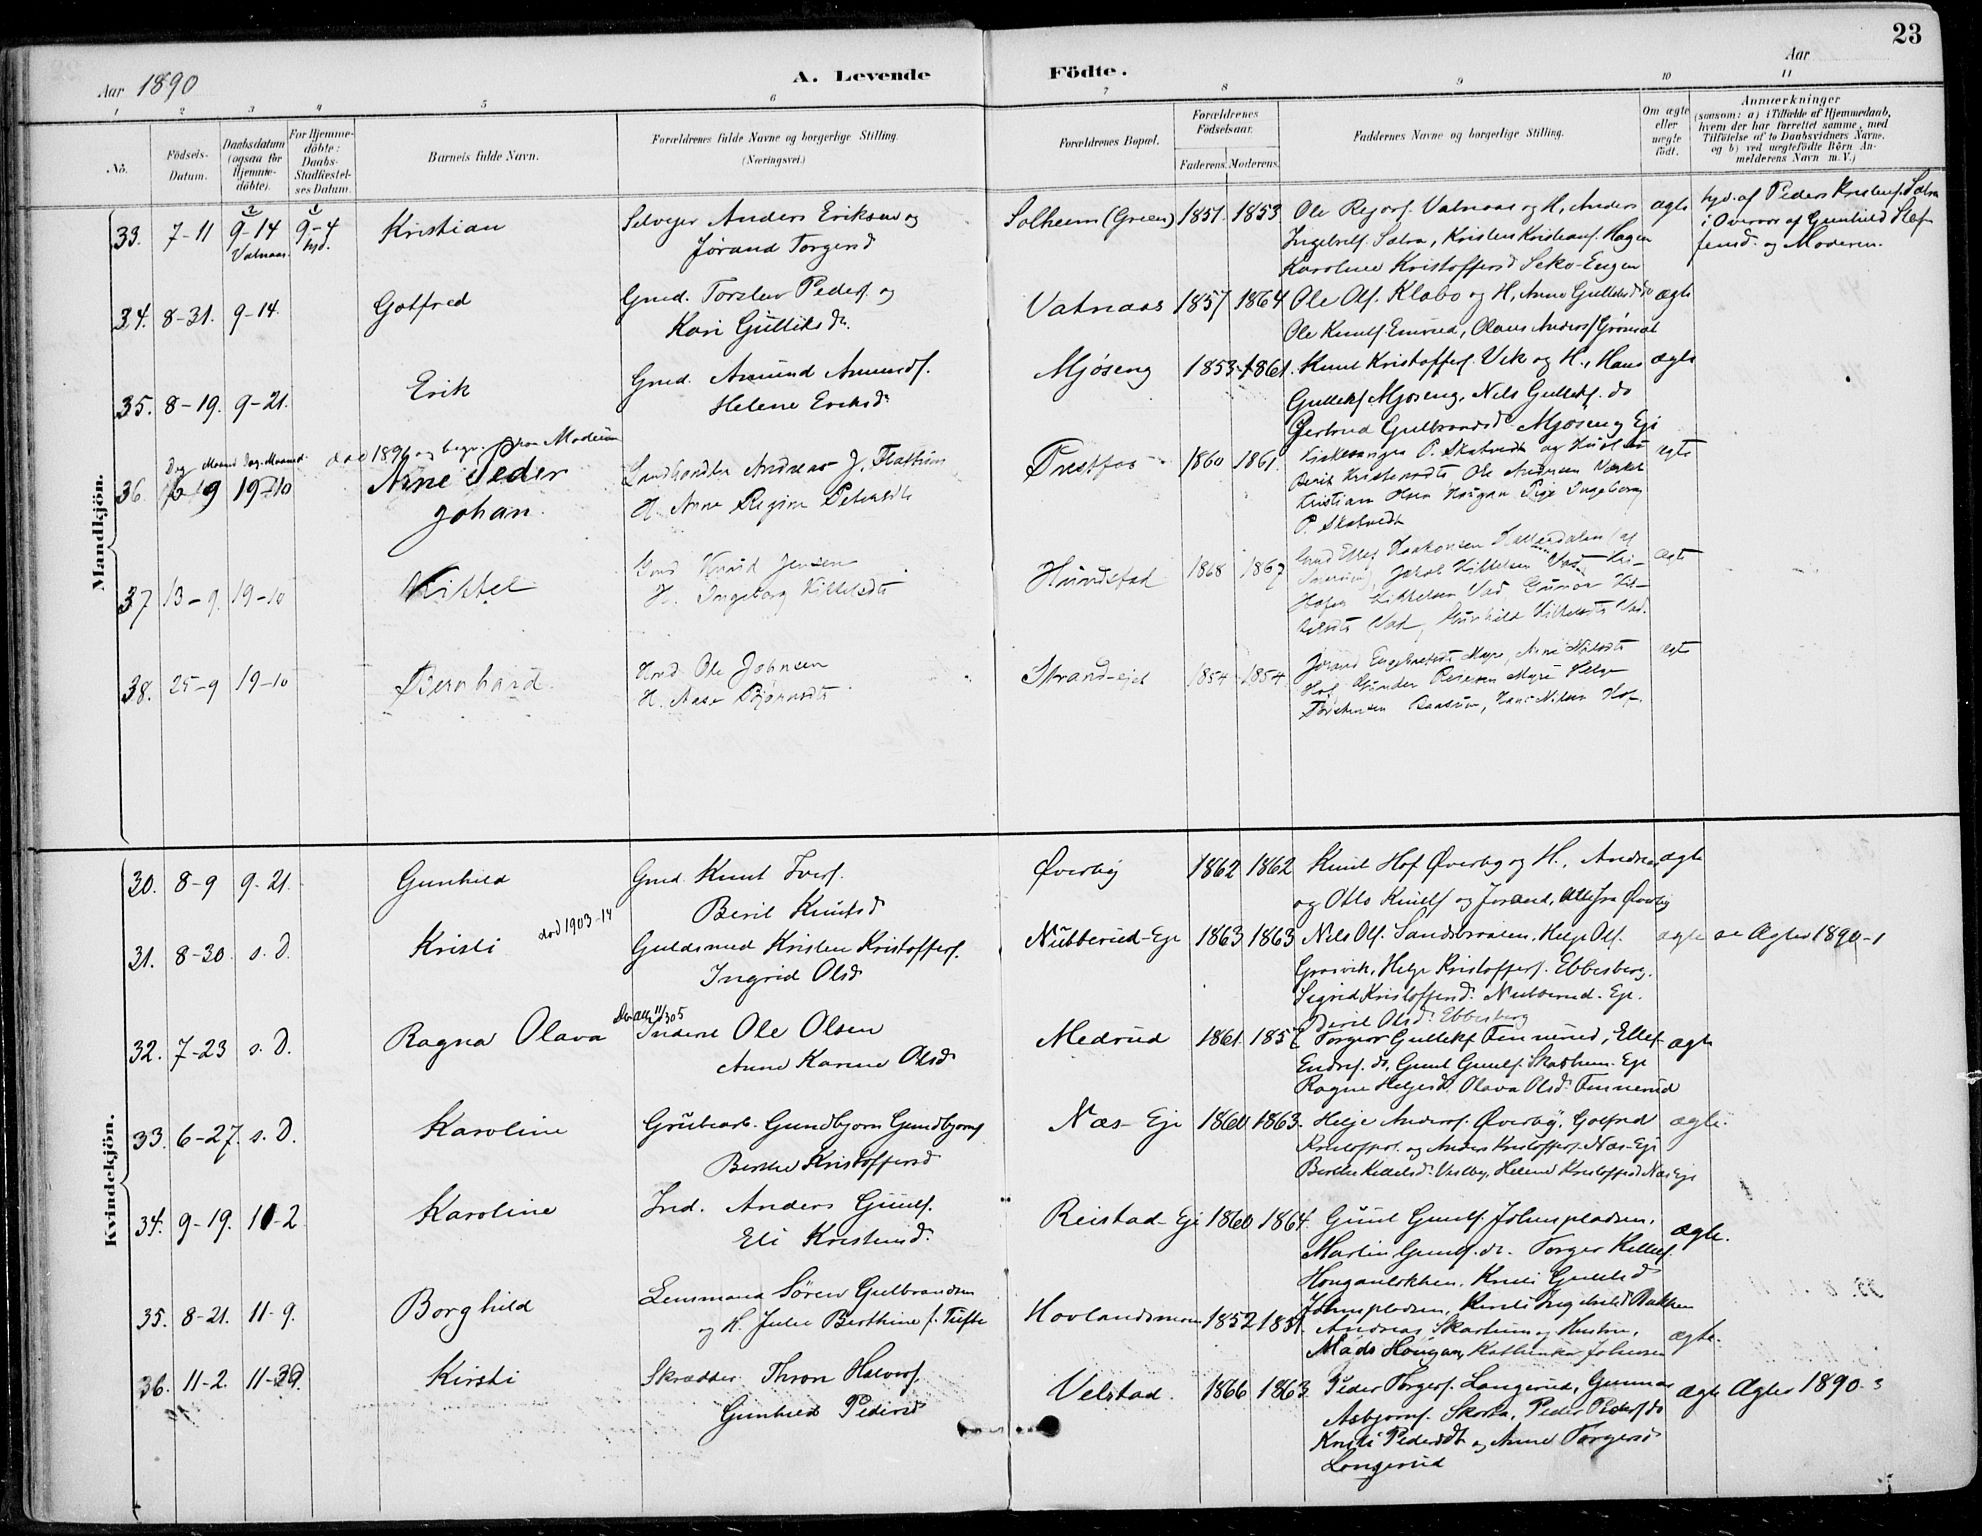 23
Aar 1890
A. Levende
Födte.
Aar
1 2 3 4 5 6 7 8 9 10 11
No.
Födsels-Datum.
Daabsdatum (ogsaa for Hjemme-döbte).
For Hjemme-döbte: Daabs-Stadfæstel-ses Datum.
Barnets fulde Navn.
Forældrenes fulde Navne og borgerlige Stilling.
(Næringsvei.)
Forældrenes Bopæl.
Forældrenes Födselsaar.
Faderens. Moderens.
Faddernes Navne og borgerlige Stilling.
Om ægte eller uægte födt.
Anmærkninger
(saasom: a) i Tilfælde af Hjemmedaab,
hvem der har forrettet samme, med
Tilföielse af to Daabsvidners Navne.
og b) ved uægtefödte Börn An-
melderens Navn m. V.)
Mandkjön.
33. 7-11 9-14 Vatnaas. 9-4 hjd. Kristian
Selvejer Anders Eriksen og
Jørand Torgersd
Solheim (Green) 1851. 1853
Ole Vatnaas og H, Anders
Ingebrits. Sætra, Kristen Kristians. Hagen
Karoline Kristoffersd
ægte
hjd. af Peder Kristens. Sætra
i Overvær af Gunhild Stef
fensd. og Moderen.
34. 8-31. 9-14. Gotfred
Gmd. Torsten Peders. og
Kari Gulliksdr.
Vatnaas 1857 1864
Ole Ols. Klobo og H, Anne Gulleksd do
Ole Knuts. Enerud, Olaus Anders.
ægte
35. 8-19. 9-21. Erik
Gmd. Amund Amunds.
Helene Eriksdr
Mjøseng 1853 1861.
Knut Kristoffers. Vik og H., Hans
Gulleks Mjøseng, Nils Gulleks. do
Gertrud Gulbrandsd Mjøseng Eje
ægte
Dag Maaned Dag. Maaned.
død 1896 og begr. fra Modum
36. 9 19-10 Arne Peder
Johan.
Landhandler Andreas J. Flattum
H. Anne Regine Pedersdtr
Prestfos 1860 1861
Kirkesanger P. Skatvedt og Hustru
Berit Kristensdtr Ole Andersen
Kristian Olsen Haugan Pige Ingeborg
P. Skatvedt
ægte
37 13-9. 19-10 Kittel
Gmd Knud Jensen
H. Ingeborg Kittelsdtr
Hundstad 1868 1867
Haakonsen
Jakob Kittelsen Vad
Kittelsen Vad, Gunvor Kit-
telsdtr Vad, Gunhild Kittelsdtr Vad.
ægte
38. 25-9 19-10 Bernhard.
Hmd. Ole Johnsen
H. Aase Bjørnsdtr
Strand-ejet 1854 1854
Jørand Engebretsdtr Myre, Arne Nilsdtr
Hof. Gunder Petersen Myre Helge
Torstensen, Hans Nilsen Hof.
ægte
Kvindekjön.
30. 8-9 9-21. Gunhild
Gmd. Knut Ivers.
Berit Knutsd
Øverby 1862 1862
Knut Hof Øverby og H., Andreas
og Otto Knuts og Jørand, alle fra Øverby
ægte
31. 8-30 s. D. Kristi
død 1903-14
Guldsmed Kristen Kristoffers.
Ingrid Olsd
Nubberud-Eje 1863 1863
Nils Ols. Sandsbraaten, Helge Ols.
Grosvik, Helge Kristoffers. Ebbesberg.
Sigrid Kristoffersd. Nubberud-Eje.
Berit Olsd. Ebbesberg
ægte se Ægtev 1890-1
32. 7-23 s. D. Ragna Olava
Inderst Ole Olsen
Anne Karine Olsd
Medrud 1861.
Torgeir Gulleks Finnerud, Ellef
Endres. do, Gunt Gunls. Skatthem. Eje
Ragne Helgesd. Olava Olsd. Finnerud
ægte
33. 6-27. s. D. Karoline
Grubearb. Gundbjørn Gundbjørns
Berthe Kristoffersd
Næs-Eje 1860 1863.
Helge Anders. Øverby, Gotfred
Kristoffers. og Anders Kristoffers. Næs-Eje
Berthe Kittelsd. Helene Kristoffersd Næs Eje
ægte.
34. 9-19. 10-2 Karoline
Ind. Anders Gunls.
Eli Kristensd.
Reistad-Eje 1860 1864.
Gunl Gunls. Johnspladsen.
Martin Gunls. do. Torger Kittels.
Houganløkken, Kristi Gulliksd
Johnspladsen, Kirsti Ingebretsd Bakken
ægte.
35. 8-21. 11-9. Borghild
Lensmand Sören Gulbrandsen
og H. Julie Berthine f. Tufte
Hovlandsmoen 1852 1851.
Andreas Skartum og Hustru,
Mads Hougan, Kathinka Johnsen
ægte.
36. 11-2. 11-29. Kirsti
Skrædder Thron Halvors.
Gunhild Pedersd
Velstad. 1866 1863
Peder Torgers. Langerud, Gunnar
Asbjørns. Peder Peders do
Kristi Pedersdt og Anne Torgersd
Langerud
ægte Ægtev 1890-3